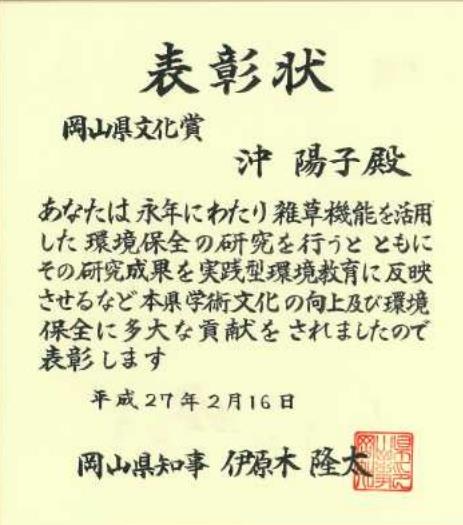 表彰状
岡山県文化賞
沖 陽子殿
あなたは永年にわたり雑草機能を活用
した環境保全の研究を行うとともに
その研究成果を実践型環境教育に反映
させるなど本県学術文化の向上及び環境
保全に多大な貢献をされましたので
表彰します
平成27年2月16日
岡山県知事 伊原木 隆太